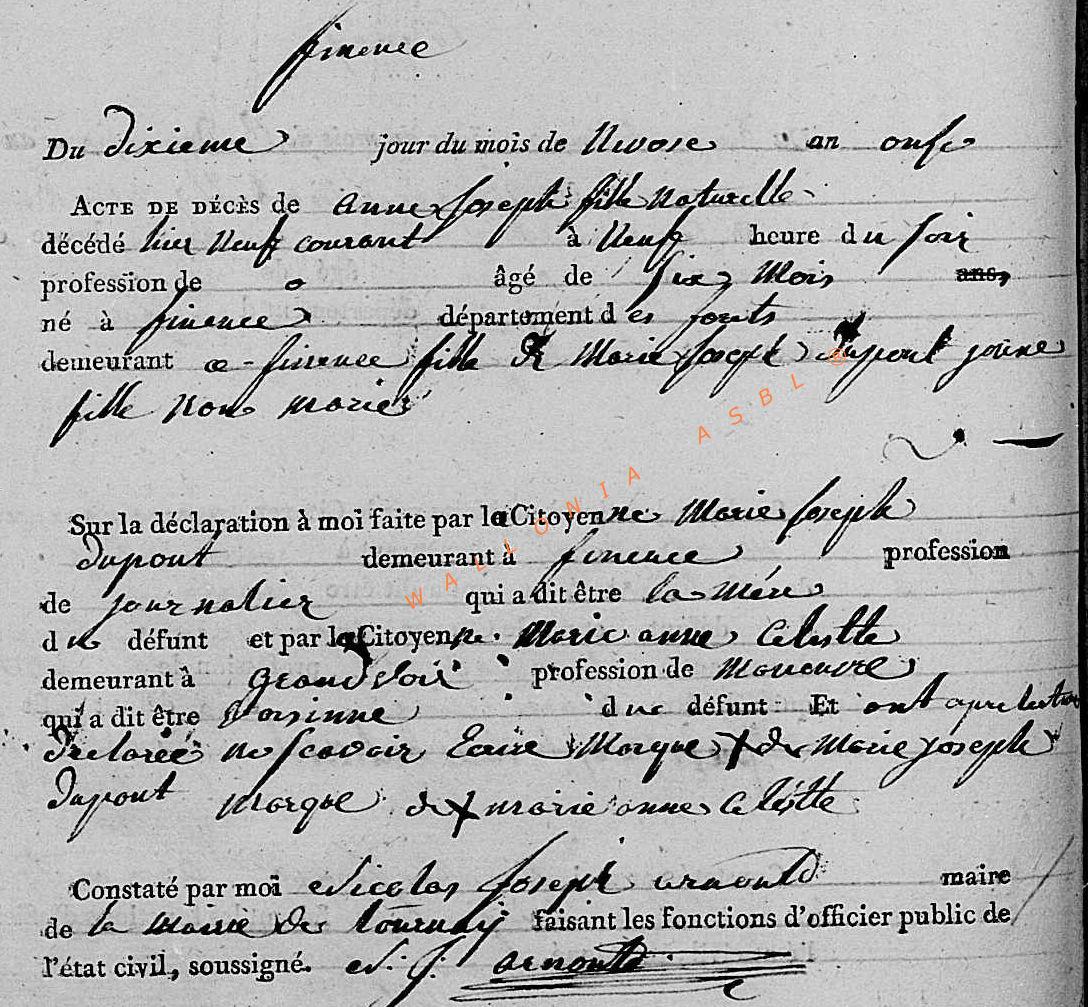 finence
Du dixieme jour du mois de Nivose an onse
ACTE DE DÉCÈS de anne Joseph fille naturelle
décédé hier Neuf courant à Neuf heure du soir
profession de o âgé de six Mois ans,
né à finence département des forets
demeurant a finence fille de Marie Joseph Dupont jeune
fille non mariée
Sur la déclaration à moi faite par la Citoyenne Marie Joseph
Dupont demeurant à finence profession
de journalier qui a dit être la Mére
d ne défunt et par la Citoyenne Marie anne Celestte
demeurant à Grandvoir profession de Maneuvre
qui a dit être Voisinne d ne défunt Et ont apre lectur
Declarée ne scavoir Ecrire Marque + de Marie Joseph
Dupont Marque de + marie anne Celestte
Constaté par moi Nicolas Joseph arnould maire
de la Mairie de tournay faisant les fonctions d'officier public de
l'état civil, soussigné. N. J. arnould
WALLONIA ASBL ©